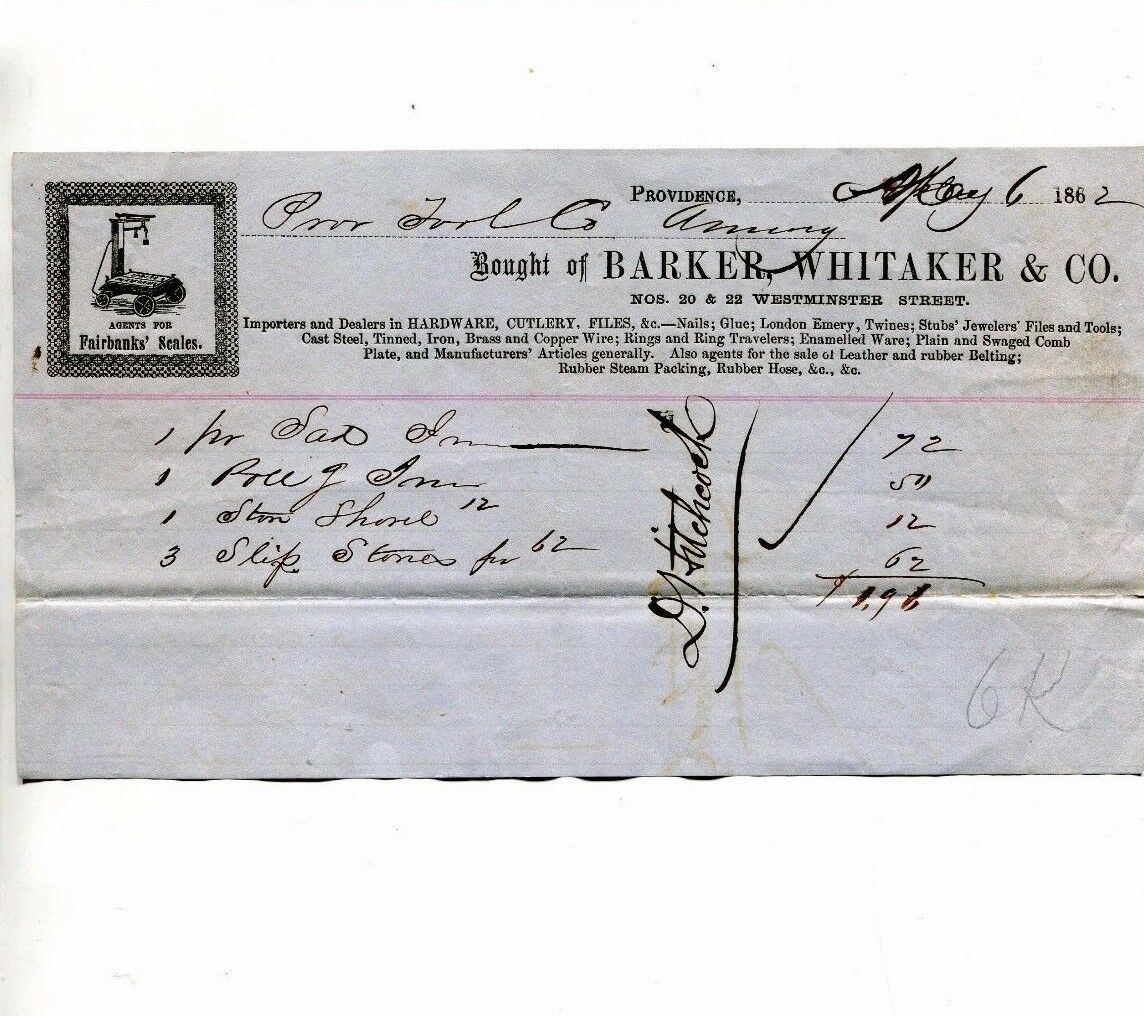 PROVIDENCE, May 6 1862
Prov Tool Co Armory
Bought of BARKER, WHITAKER & CO.
NOS. 20 & 22 WESTMINSTER STREET.
AGENTS FOR
Fairbanks' Scales.
Importers and Dealers in HARDWARE, CUTLERY, FILES, &c.—Nails; Glue; London Emery, Twines; Stubs' Jewelers' Files and Tools;
Cast Steel, Tinned, Iron, Brass and Copper Wire; Rings and Ring Travelers; Enamelled Ware; Plain and Swaged Comb
Plate, and Manufacturers' Articles generally. Also agents for the sale of Leather and rubber Belting;
Rubber Steam Packing, Rubber Hose, &c., &c.
1 pr Sad Irn 72
1 Irn 50
1 Shovel 12 12
3 Slip Stones pr 62 62
1.96
D. Hitchcock